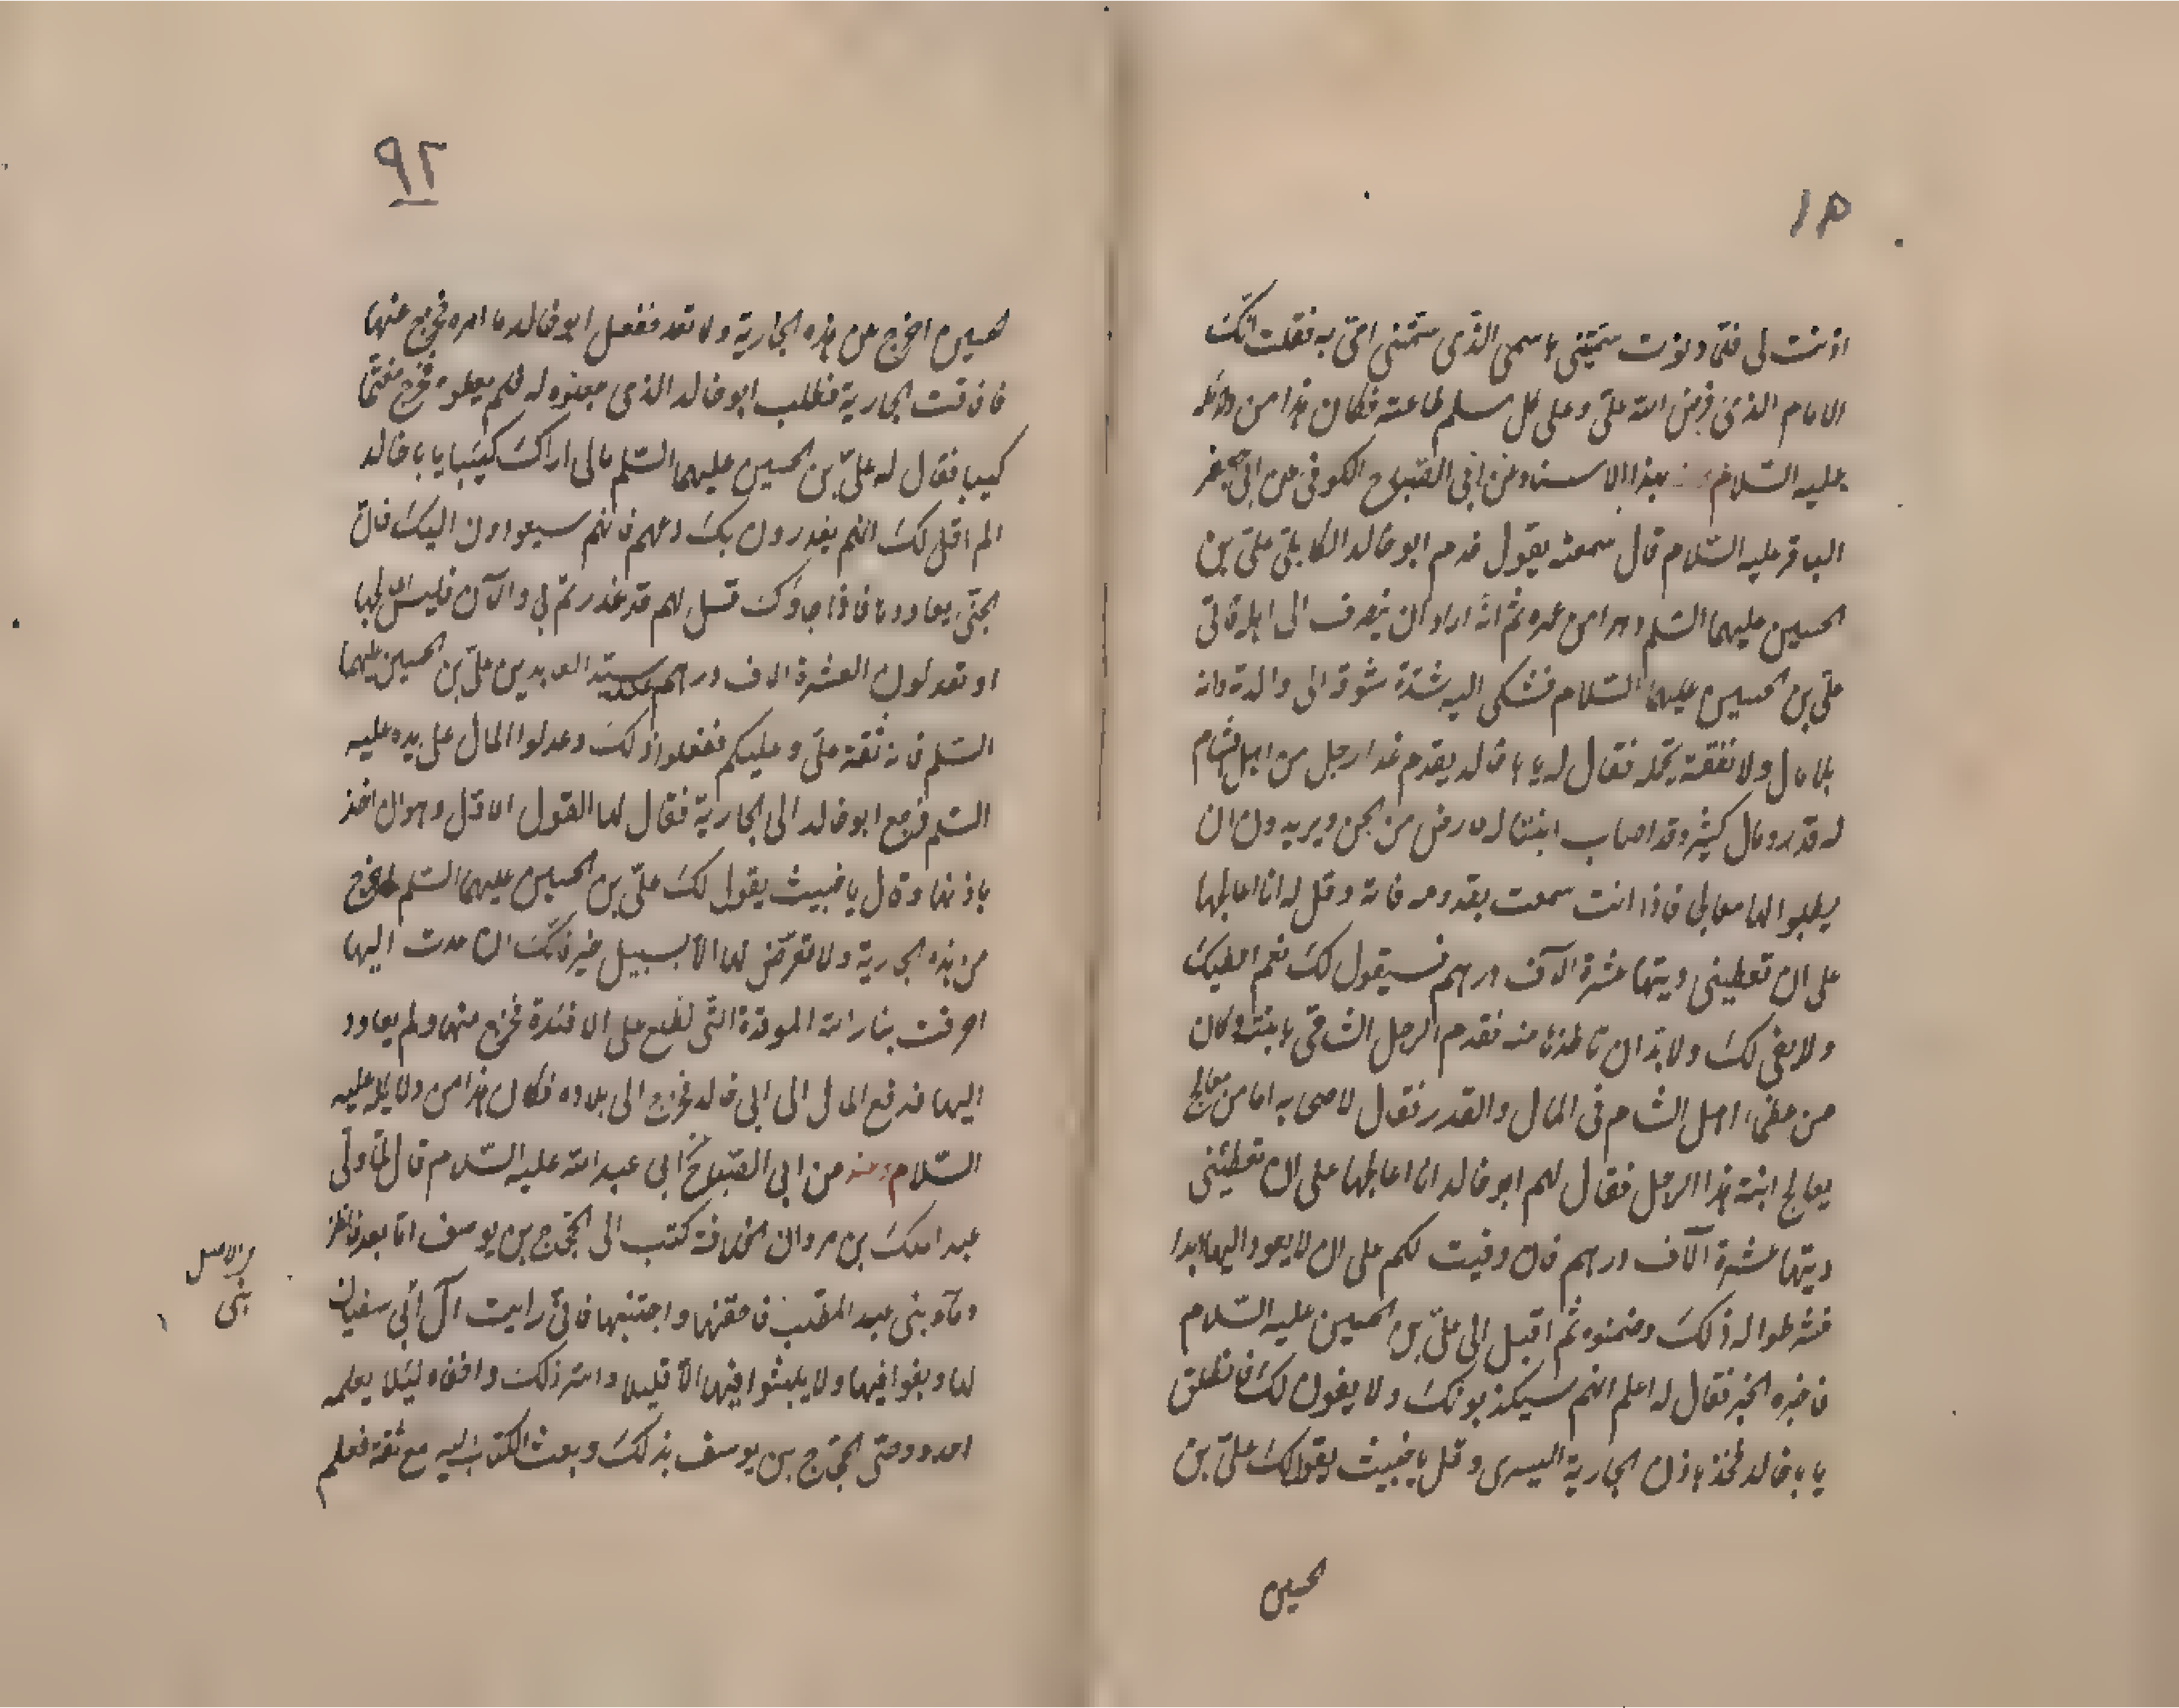 ١٥
اذنت لى فلمّا دنوت سمّيتنى باسمى الذّى سمّتنى امّى به فعلمت انّك
الامام الذى فرض الله علىّ وعلى كل مسلم طاعته فكان هذا من دلائله
عليه السّلام بهذا الاسناد عن ابى الصّباح الكوفى عن ابى جعفر
الباقر عليه السّلام قال سمعته يقول خدم ابو خالد الكابلى علىّ بن
الحسين عليهما السّلم دهرا من عمره ثم انّه اراد ان ينصرف الى اهله فاتى
علىّ بن الحسين عليهما السّلام فشكى اليه شدّة شوقه الى والدته وانه
بلا مال ولا نفقة تحمله فقال له يا با خالد يقدم غدا رجل من اهل الشام
له قدر ومال كثير وقد اصاب ابنتا له عارض من الجن ويريدون ان
يطلبوا لها معالجا فاذا انت سمعت بقدومه فاته وقل له انا اعالجها
على ان تعطينى ديتها عشرة الآف درهم فسيقول لك نعم اعطيك
ولا يفى لك ولا بدّ ان تاخذها منه فقدم الرجل الشامى بابنته وكان
من عظماء اهل الشام فى المال والقدر فقال لاصحابه اما من معالج
يعالج ابنة هذا الرجل فقال لهم ابو خالد انا اعالجها على ان تعطينى
ديتها عشرة آلآف درهم فان وفيت لكم على ان لا يعود اليها ابدا
فشرطوا له ذلك وضمنوه ثم اقبل الى علىّ بن الحسين عليه السّلام
فاخبره الخبر فقال له اعلم انهم سيكذبونك ولا يفون لك فانطلق
يا با خالد فخذ باذن الجارية اليسرى وقل يا خبيث يقول لك علىّ بن
الحسين
٩٢
الحسين اخرج من هذه الجارية ولا تعد ففعل ابو خالد ما امره فخرج عنها
فافاقت الجارية فطلب ابو خالد الذى جعلوه له فلم يعطوه فخرج مغتمّا
كئيبا فقال له علىّ بن الحسين عليهما السّلم مالى اراك كئيبا يا با خالد
الم اقل لك انهم يغدرون بك دعهم فانهم سيعودون اليك فان
الجنّى يعاودها فاذا جاؤك فقل لهم قد غدرتم بى والآن فليس لها
او تعدلون العشرة الاف درهم سيّد العابدين علىّ بن الحسين عليهما
السّلم فانه ثقة علىّ وعليكم ففعلوا ذلك وعدلوا المال على يده عليه
السّلم فرجع ابو خالد الى الجارية فقال لها القول الاوّل وهو ان اخذ
باذنها وقال يا خبيث يقول لك علىّ بن الحسين عليهما السّلم اخرج
من هذه الجارية ولا تعرّض لها الّا بسبيل خير فانّك ان عدت اليها
احرقت بنار الله الموقدة التّى تطلع على الافئدة فخرج منها ولم يعاود
اليها فدفع المال الى ابى خالد فخرج الى بلاده فكان هذا من دلايله عليه
السّلام ومنه عن ابى الصّباح عن ابى عبد الله عليه السّلام قال لمّا ولّى
عبد الملك بن مروان الخلافة كتب الى الحجّاج بن يوسف امّا بعد فانظر
دماء بنى عبد المطّلب فاحقنها واجتنبها فانّى رايت آل ابى سفيان
لما ولغوا فيها ولا يلبثوا فيها الّا قليلا واستر ذلك واخفاه لئلا يعلمه
احدو وحتى الحجّاج بن يوسف بذلك وبعث الكتاب اليه مع ثقة فعلم